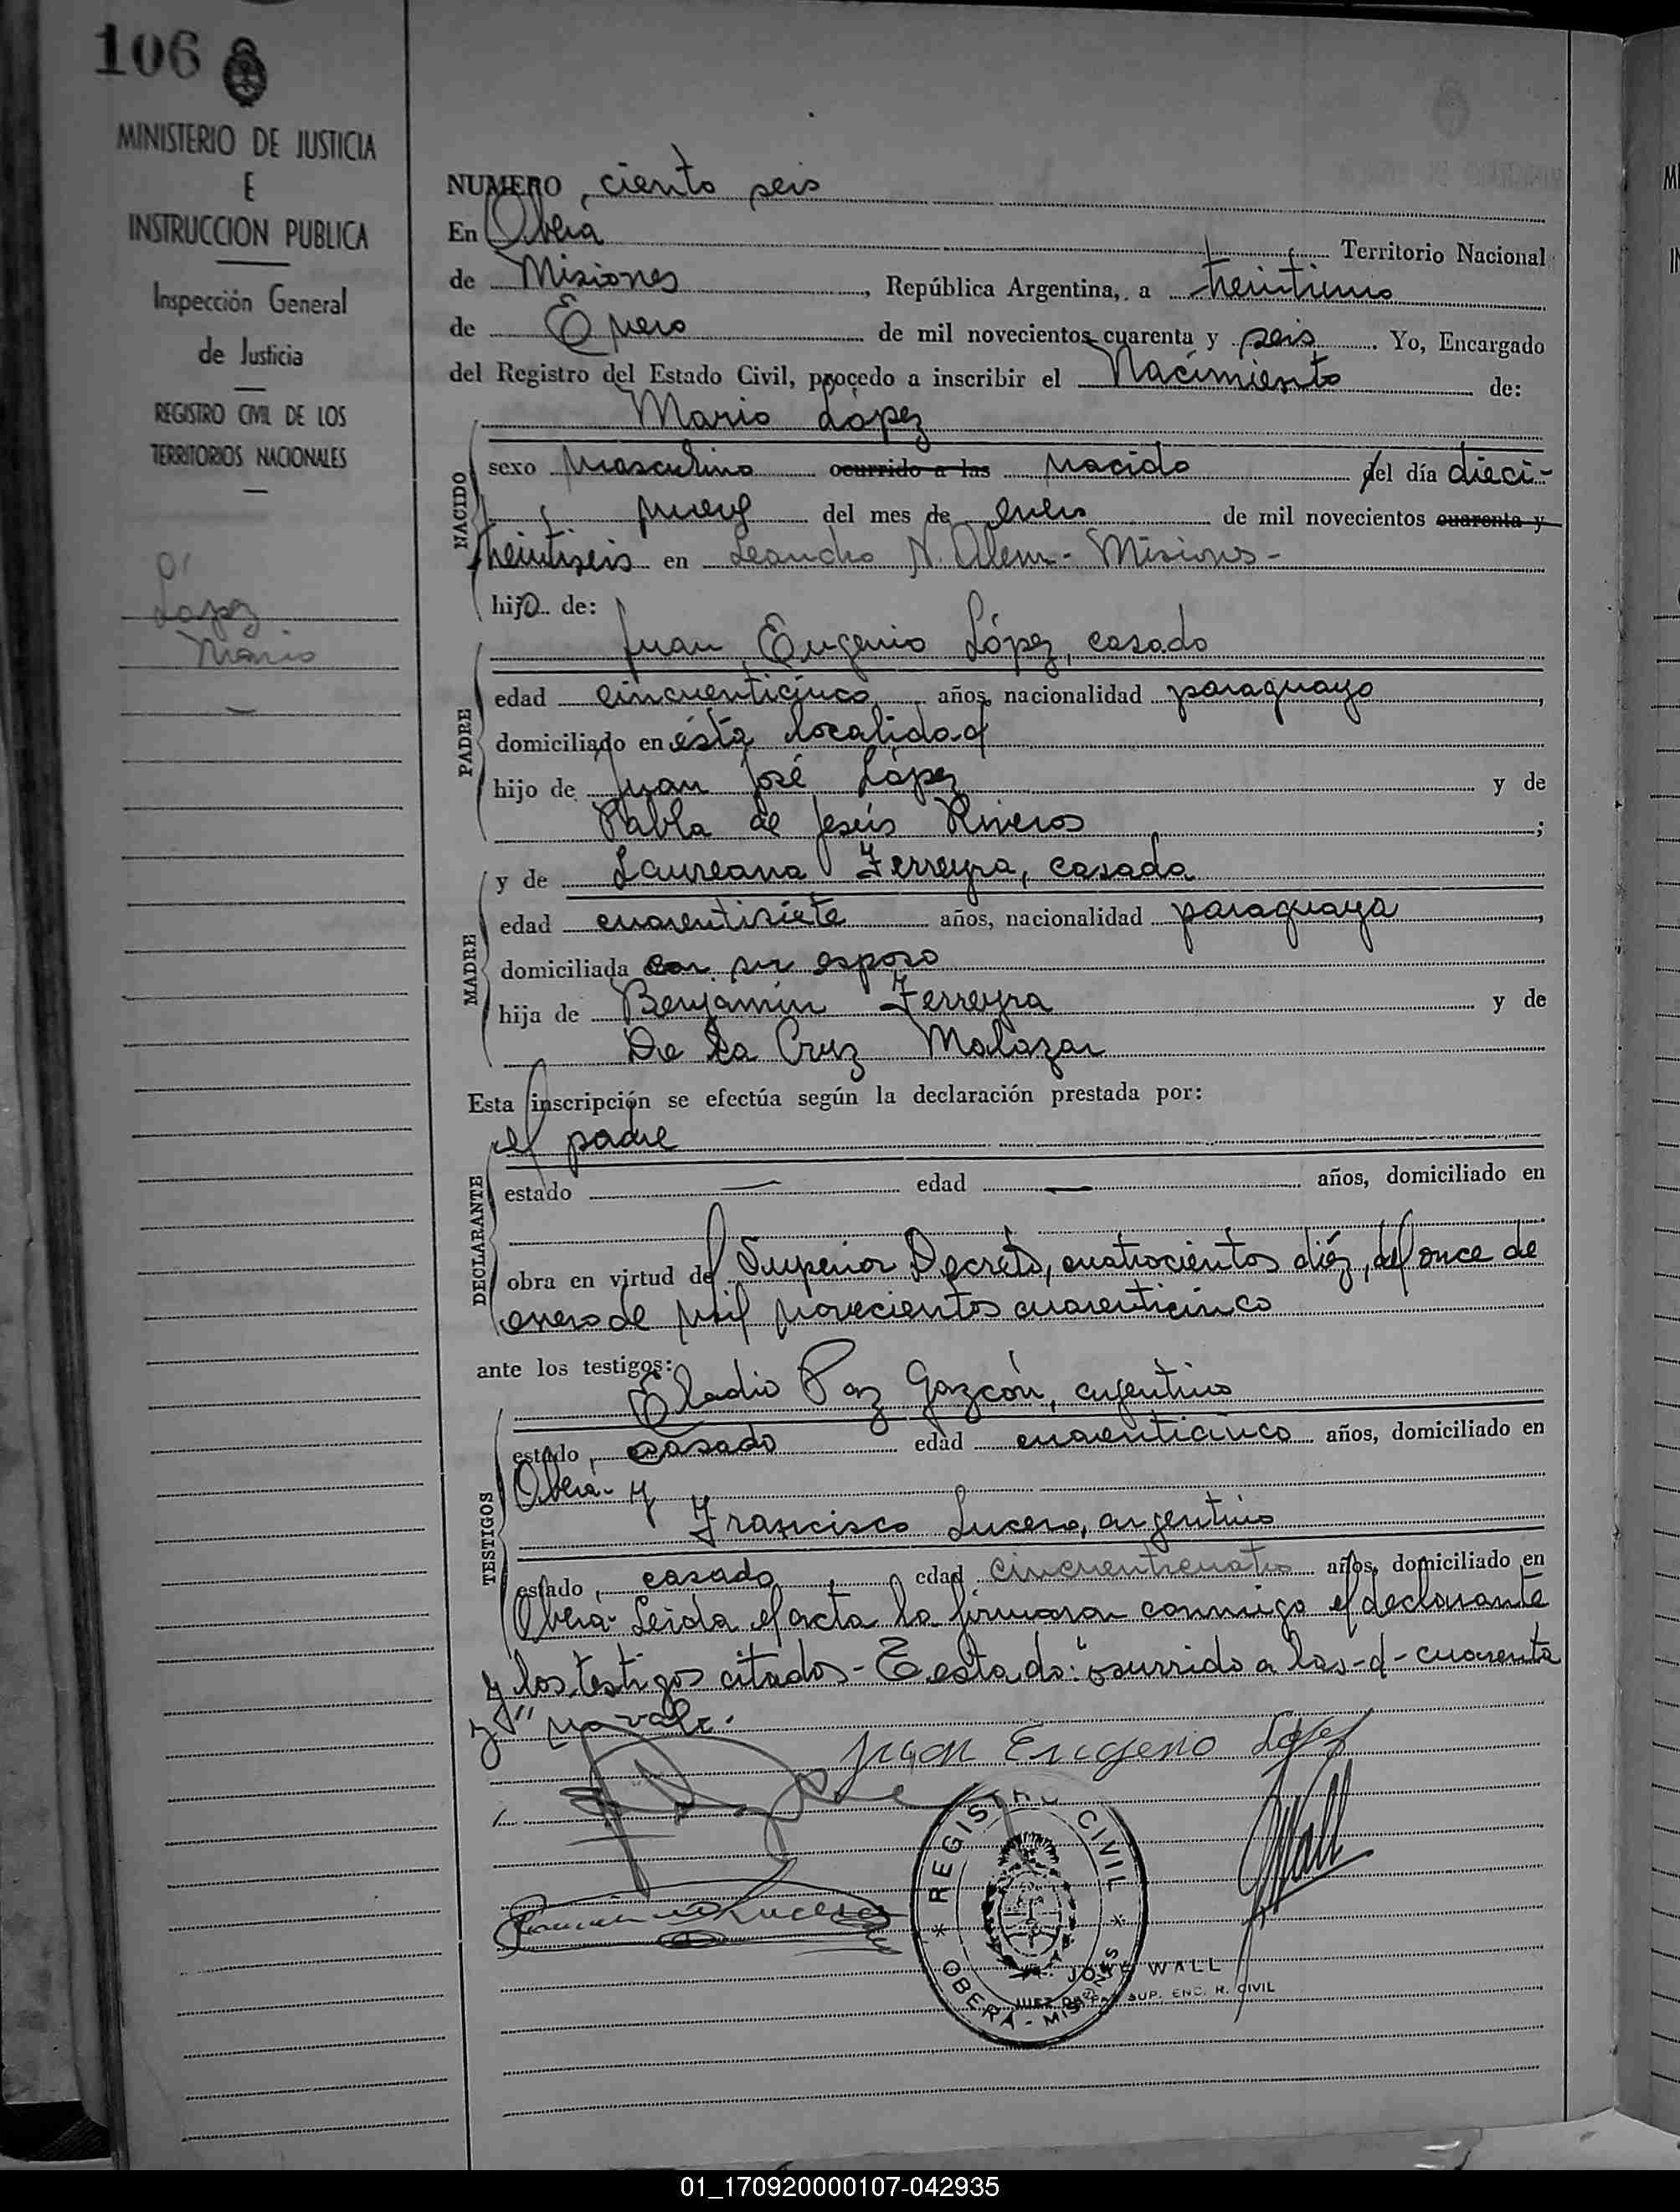 106
MINISTERIO DE JUSTICIA
E
INSTRUCCION PUBLICA
Inspección General
de Justicia
REGISTRO CIVIL DE LOS
TERRITORIOS NACIONALES
López
Mario
NUMERO ciento seis
En Oberá Territorio Nacional
de Misiones, República Argentina, a treintiuno
de Enero de mil novecientos cuarenta y seis. Yo, Encargado
del Registro del Estado Civil, procedo a inscribir el Nacimiento de:
Mario López
NACIDO
sexo masculino ocurrido a las nacido el día dieci-
nueve del mes de enero de mil novecientos cuarenta y
treintiseis en Leandro N. Alem - Misiones -
hijo de:
Juan Eugenio López, casado
PADRE
edad cincuenticinco años, nacionalidad paraguayo,
domiciliado en ésta localidad
hijo de Juan José López y de
Pabla de Jesús Riveros;
MADRE
y de Laureana Ferreyra, casada
edad cuarentisiete años, nacionalidad paraguaya,
domiciliada con su esposo
hija de Benjamín Ferreyra y de
De La Cruz Malazar
Esta inscripción se efectúa según la declaración prestada por:
el padre
DECLARANTE
estado — edad — años, domiciliado en
obra en virtud del Superior Decreto, cuatrocientos diéz, del once de
enero de mil novecientos cuarenticinco
ante los testigos:
Eladio Paz Gazcón, argentino
TESTIGOS
estado, casado edad cuarenticinco años, domiciliado en
Oberá - y
Francisco Lucero, argentino
estado, casado, edad cincuenticuatro años, domiciliado en
Oberá - Leida el acta la firmaron conmigo el declarante
y los testigos citados - Testado: "ocurrido a las - d - cuarenta
y" no vale.
Juan Eugenio Lopez
Lucero
JWall
REGISTRO CIVIL
OBERA - MISIONES
JOSE WALL
JUEZ DE PAZ SUP. ENC. R. CIVIL
01_170920000107-042935